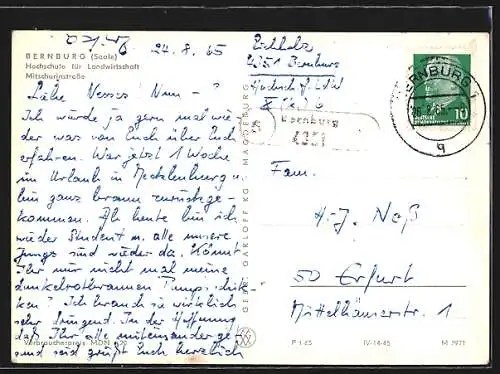 BERNBURG (Saale)
Hochschule für Landwirtschaft
Mitschurinstraße
24.8.65
Eichholz
4351 Bernburg
Liebe Nesses! Nun - ?
Ich würde ja gern mal wie-
der was von Euch über Euch
erfahren. War jetzt 1 Woche
im Urlaub in Mecklenburg u.
bin ganz braun zurückge-
kommen. Ab heute bin ich
wieder Student u. alle unsere
Jungs sind wieder da. Könnt
Ihr mir nicht mal meine
dunkelrotbraunen Pumps schik-
ken? Ich brauch sie wirklich
sehr dringend. In der Hoffnung
daß Ihr alle miteinander ge-
sund seid grüßt Euch herzlich
Verbraucherpreis MDN
GEBR. GARLOFF KG MAGDEBURG
Bernburg
4351
BERNBURG 1
q
10
Fam.
H.-J. Neß
50 Erfurt
Mittelhäuserstr. 1
P 1 65
IV-14-45
M 7971